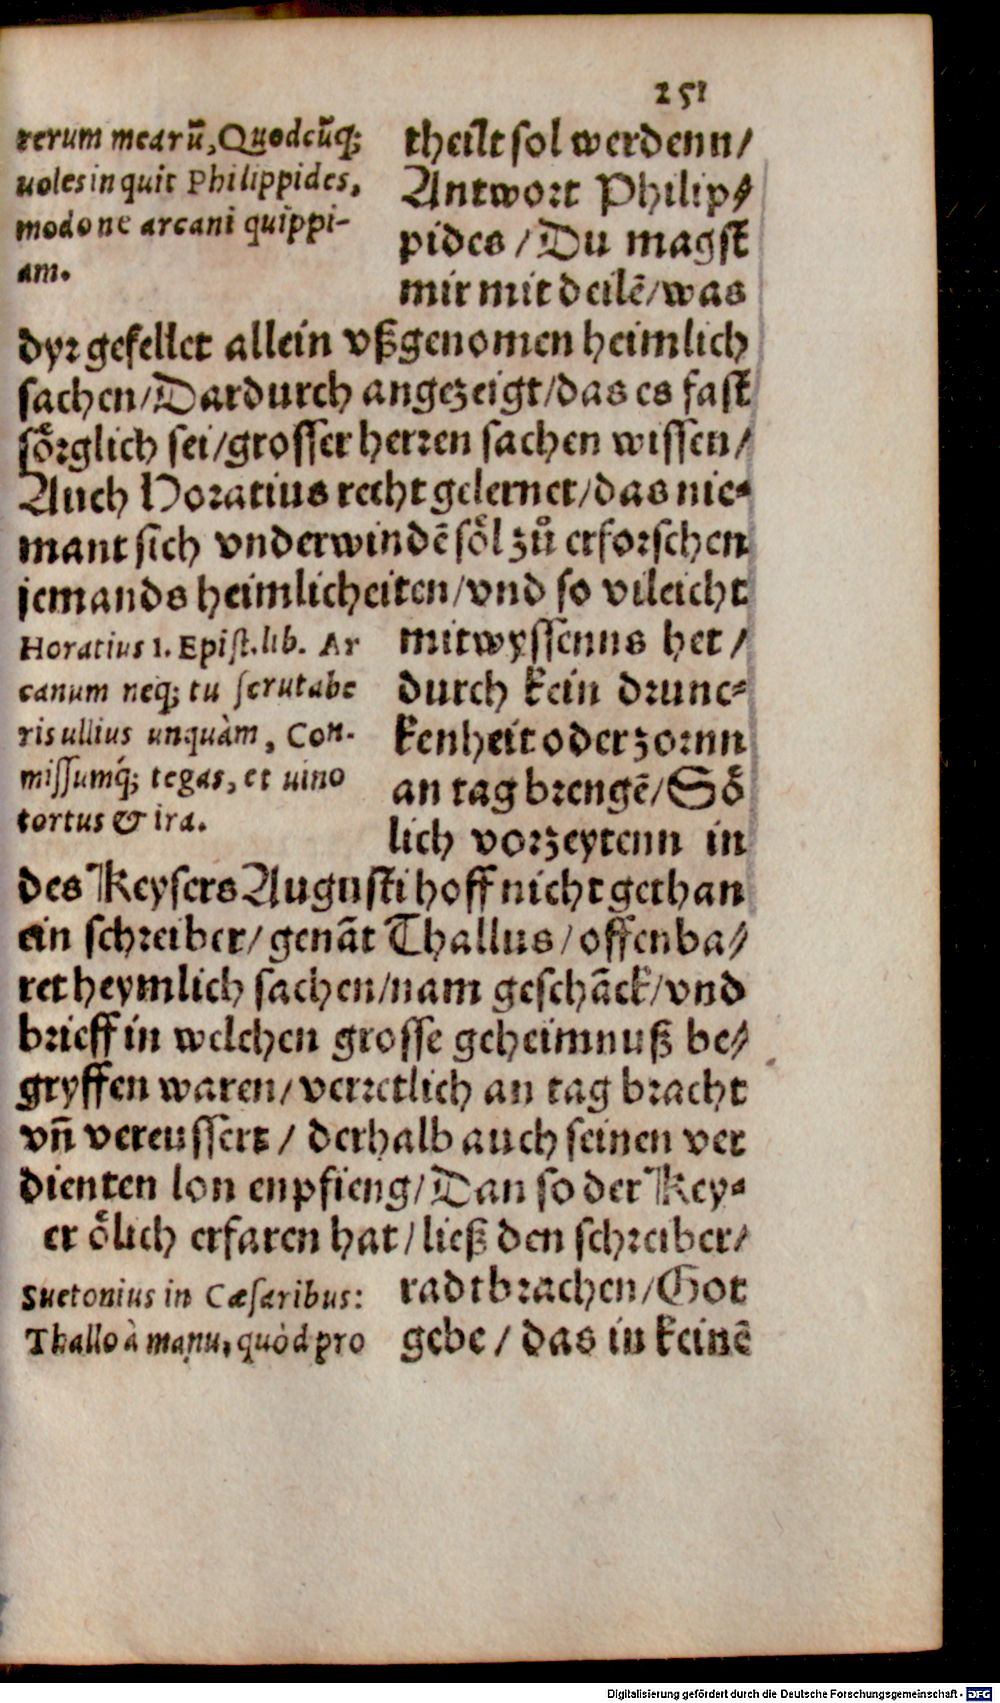 251
rerum mearũ, Quodcũq;
uoles inquit Philippides,
modo ne arcani quippi-
am.
theilt sol werdenn/
Antwort Philip⸗
pides/Du magst
mir mit deilẽ/was
dyr gefellet allein vßgenomen heimlich
sachen/Dardurch angezeigt/das es fast
soͤrglich sei/grosser herren sachen wissen/
Auch Horatius recht gelernet/das nie⸗
mant sich vnderwindẽ soͤl zuͦ erforschen
jemands heimlicheiten/vnd so vileicht
Horatius 1. Epist. lib. Ar
canum neq; tu scrutabe
ris ullius unquàm, Con-
missumq́; tegas, et uino
tortus & ira.
mitwyssenns het/
durch kein drunc⸗
kenheit oder zornn
an tag brengẽ/Soͤ
lich vorzeytenn in
des Keysers Augusti hoff nicht gethan
ein schreiber/genãt Thallus/offenba⸗
ret heymlich sachen/nam geschãck/vnd
brieff in welchen grosse geheimnuß be⸗
gryffen waren/verretlich an tag bracht
vñ vereussert/derhalb auch seinen ver
dienten lon enpfieng/Dan so der Key⸗
er oͤlich erfaren hat/ließ den schreiber/
Suetonius in Cæsaribus:
Thallo à manu, quòd pro
radtbrachen/Got
gebe/das in keinẽ
Digitalisierung gefördert durch die Deutsche Forschungsgemeinschaft - DFG